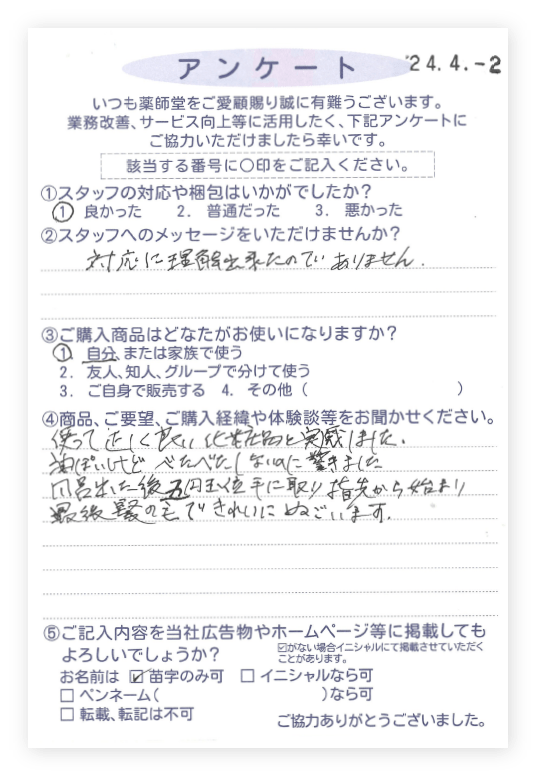 アンケート
'24.4.-2
いつも薬師堂をご愛顧賜り誠に有難うございます。
業務改善、サービス向上等に活用したく、下記アンケートに
ご協力いただけましたら幸いです。
該当する番号に○印をご記入ください。
①スタッフの対応や梱包はいかがでしたか?
① 良かった 2. 普通だった 3. 悪かった
②スタッフへのメッセージをいただけませんか?
対応に理解出来たのでありません.
③ご購入商品はどなたがお使いになりますか?
① 自分、または家族で使う
2. 友人、知人、グループで分けて使う
3. ご自身で販売する 4. その他( )
④商品、ご要望、ご購入経緯や体験談等をお聞かせください。
使って正しく良い化粧品と実感しました.
油ぽいけどべたべたしないのに驚きました
風呂出た後五円玉位手に取り指先から始まり
最後髪の毛できれいにぬぐいます.
⑤ご記入内容を当社広告物やホームページ等に掲載しても
よろしいでしょうか?
☑がない場合イニシャルにて掲載させていただく
ことがあります。
お名前は ☑ 苗字のみ可 □ イニシャルなら可
□ ペンネーム( )なら可
□ 転載、転記は不可
ご協力ありがとうございました。